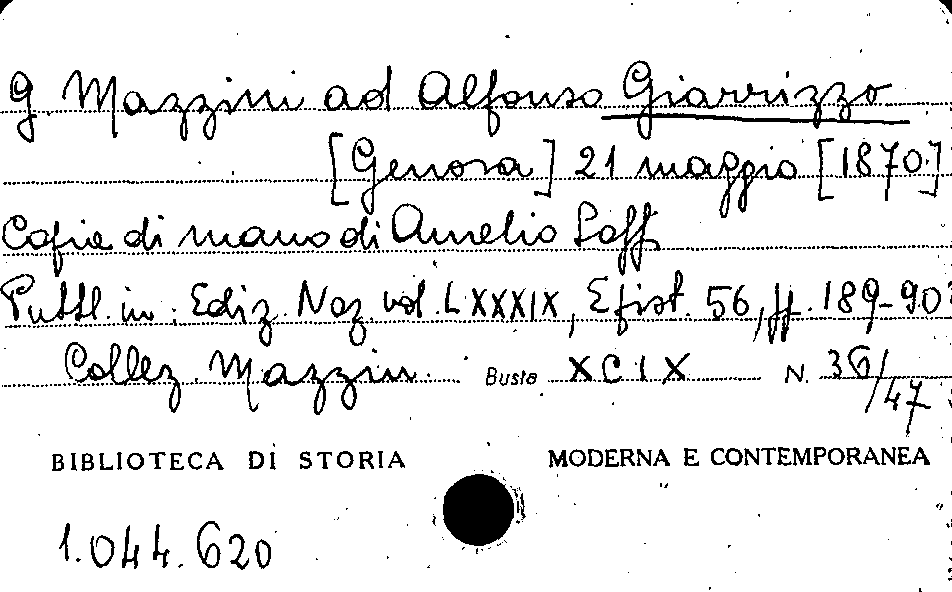 G. Mazzini ad Alfonso Giarrizzo
[Genova] 21 maggio [1870]
Copia di mano di Aurelio Saffi
Pubbl. in: Ediz. Naz. vol. LXXXIX, Epist. 56, pp. 189-90
Collez. Mazzini Busta XCIX N. 36/47
BIBLIOTECA DI STORIA MODERNA E CONTEMPORANEA
1.044.620